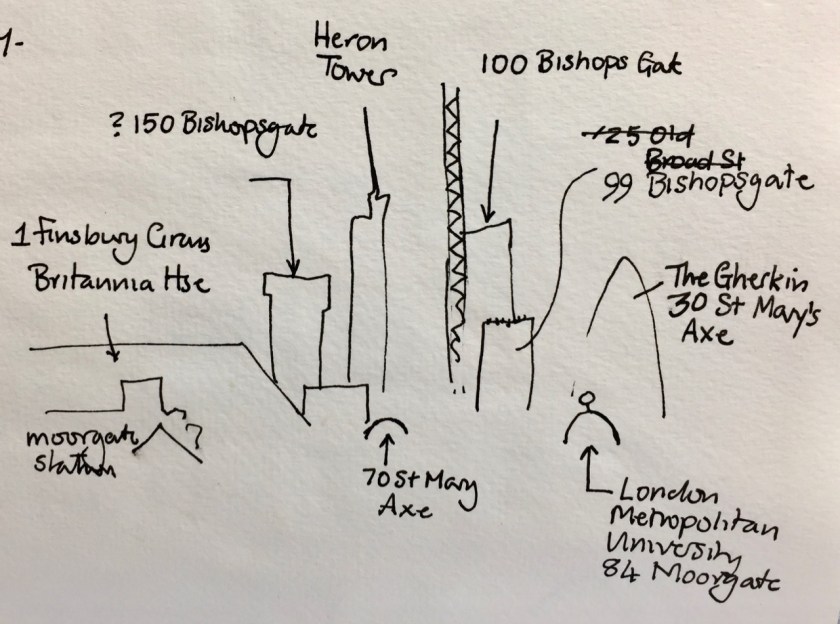 1-
Heron
Tower
100 Bishops Gate
? 150 Bishopsgate
125 Old
Broad St
99 Bishopsgate
1 Finsbury Circus
Britannia Hse
The Gherkin
30 St Mary's
Axe
moorgate
station
?
70 St Mary
Axe
London
Metropolitan
University
84 Moorgate